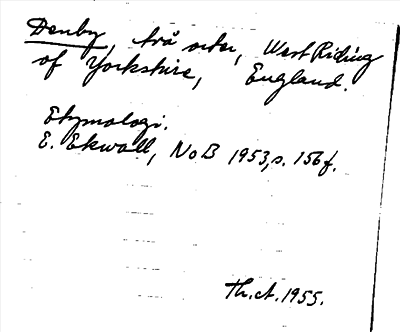 Denby, två orter, West Riding
of Yorkshire, England.
Etymologi.
E. Ekwall, NoB 1953, s. 156 f.
Th. ct. 1955.